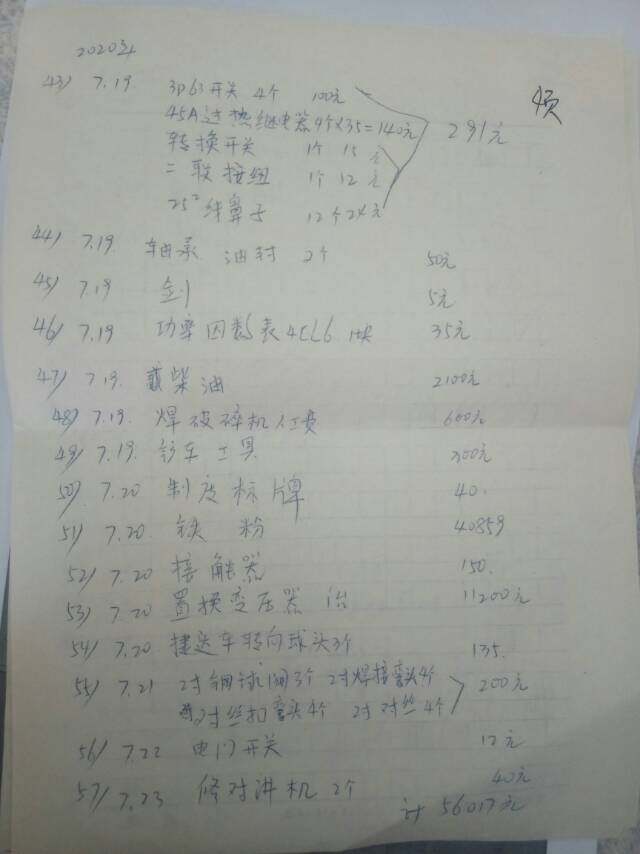 2020年
43) 7.19 3P63开关 4个 100元
45A过热继电器4个X35=140元 291元
转换开关 1个 15元
二联按纽 1个 12元
25²线鼻子 12个24元
44) 7.19 轴承 油封 2个 50元
45) 7.19 5元
46) 7.19 功率因数表4CL6 1块 35元
47) 7.19. 柴油 2100元
48) 7.19. 焊破碎机人工费 600元
49) 7.19. 车工具 300元
50) 7.20 制度标牌 40.
51) 7.20. 铁粉 40859
52) 7.20 接触器 150.
53) 7.20 置换变压器 11200元
54) 7.20 车转向球头3个 135.
55) 7.21 2寸钢球阀3个 2寸焊接弯头4个 200元
2寸丝扣弯头4个 2寸对丝4个
56) 7.22 电门开关 12元
57) 7.23 修对讲机 2个 40元
计 56017元